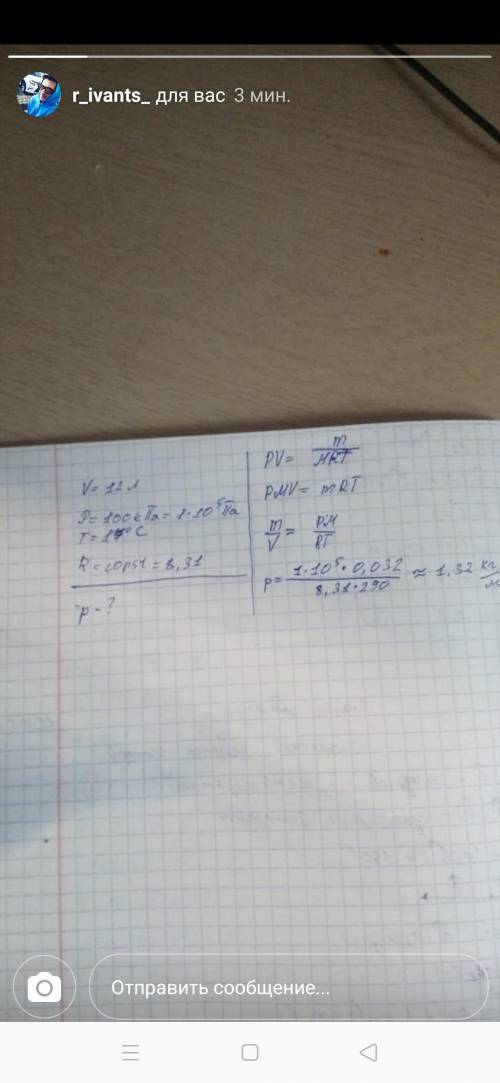 r_ivants_ для вас 3 мин.
V = 12 л
P = 100 кПа = 1·10⁵ Па
T = 17°C
R = const = 8,31
ρ - ?
PV = m/MRT
PMV = mRT
m/V = PM/RT
ρ = 1·10⁵·0,032/8,31·290 ≈ 1.32 кг/м
Отправить сообщение...